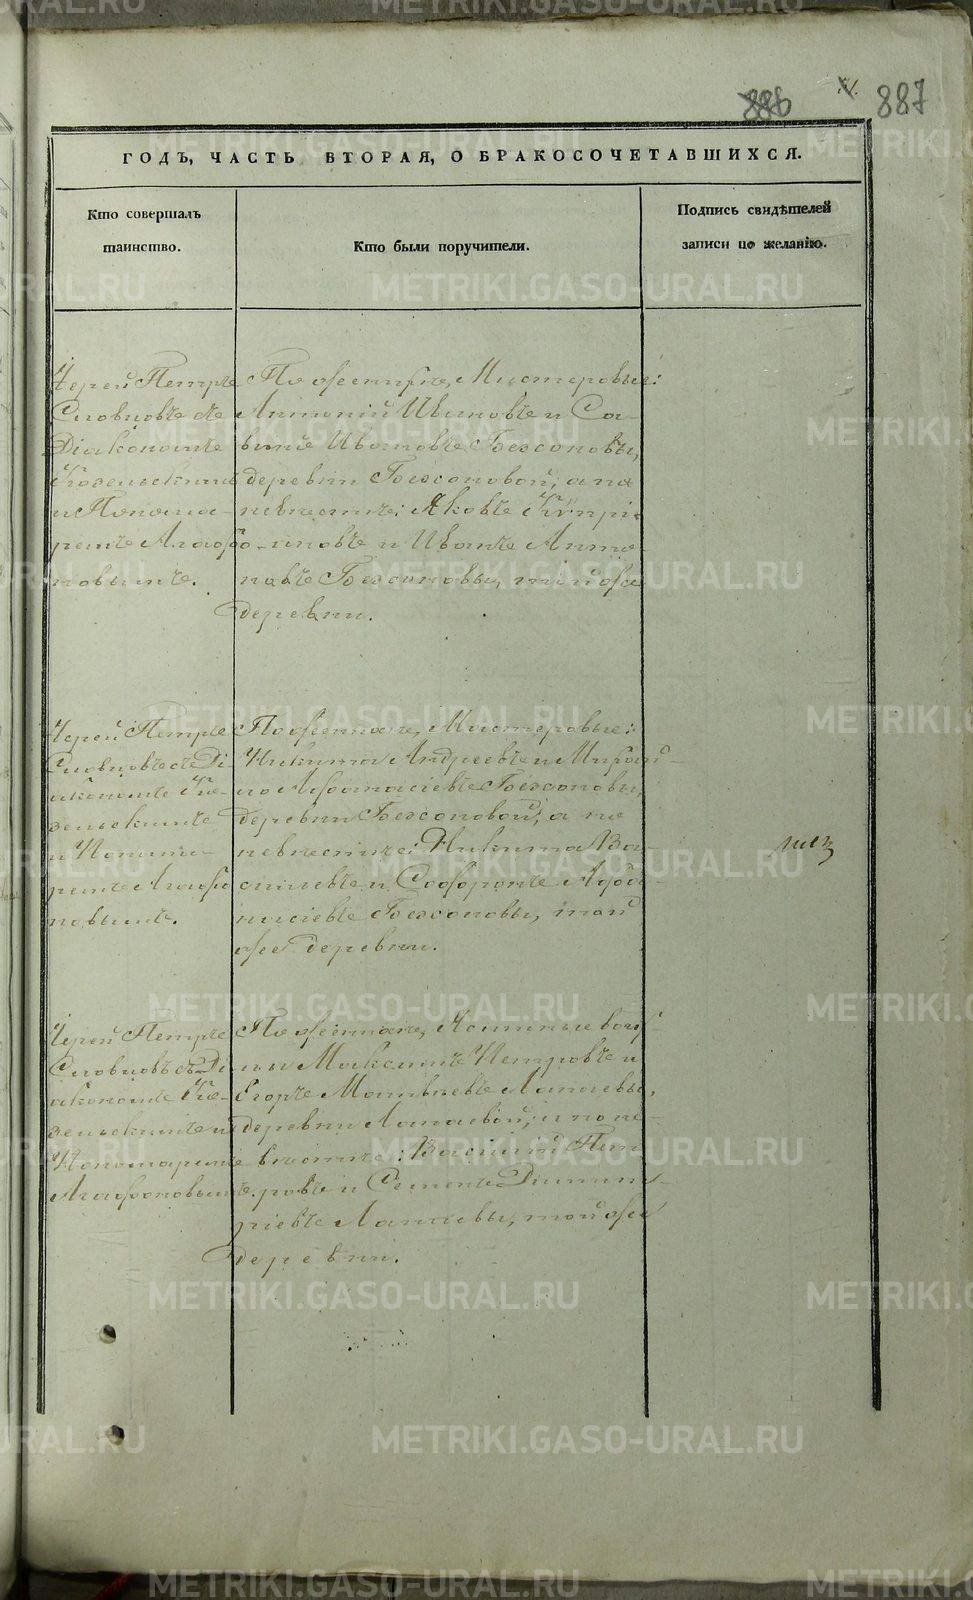 886 887
ГОДЪ, ЧАСТЬ ВТОРАЯ, О БРАКОСОЧЕТАВШИХСЯ.
Кто совершалъ
таинство.
Кто были поручители.
Подпись свидѣтелей
записи по желанію.
Іерей Петръ
Словцовъ съ
Діакономъ
Козельскимъ
и Понома-
ремъ Агафо
новымъ.
По женихѣ, Мастеровые:
Антоній Ивановъ и Са-
винъ Ивановъ Безсоновы,
деревни Безсоновой; а по
невѣстѣ: Яковъ Кипрі-
яновъ и Иванъ Анто-
новъ Безсоновы, той же
деревни.
Іерей Петръ
Словцовъ съ Ді
акономъ Ко-
зельскимъ
и Понома-
ремъ Агафо
новымъ.
По женихѣ, Мастеровые:
Никита Андреевъ и
Афанасіевъ Безсоновы,
деревни Безсоновой; а по
невѣстѣ: Никита Ва-
сильевъ и Софронъ
Безсоновы, той
же деревни.
Іерей Петръ
Словцовъ съ Ді
акономъ Ко-
зельскимъ и
Пономаремъ
Агафоновымъ.
По женихѣ,
Максимъ Петровъ и
Егоръ Матвѣевъ
деревни а по не-
вѣстѣ: Василій Пет
ровъ и Семенъ Димит-
ріевъ той же
деревни.